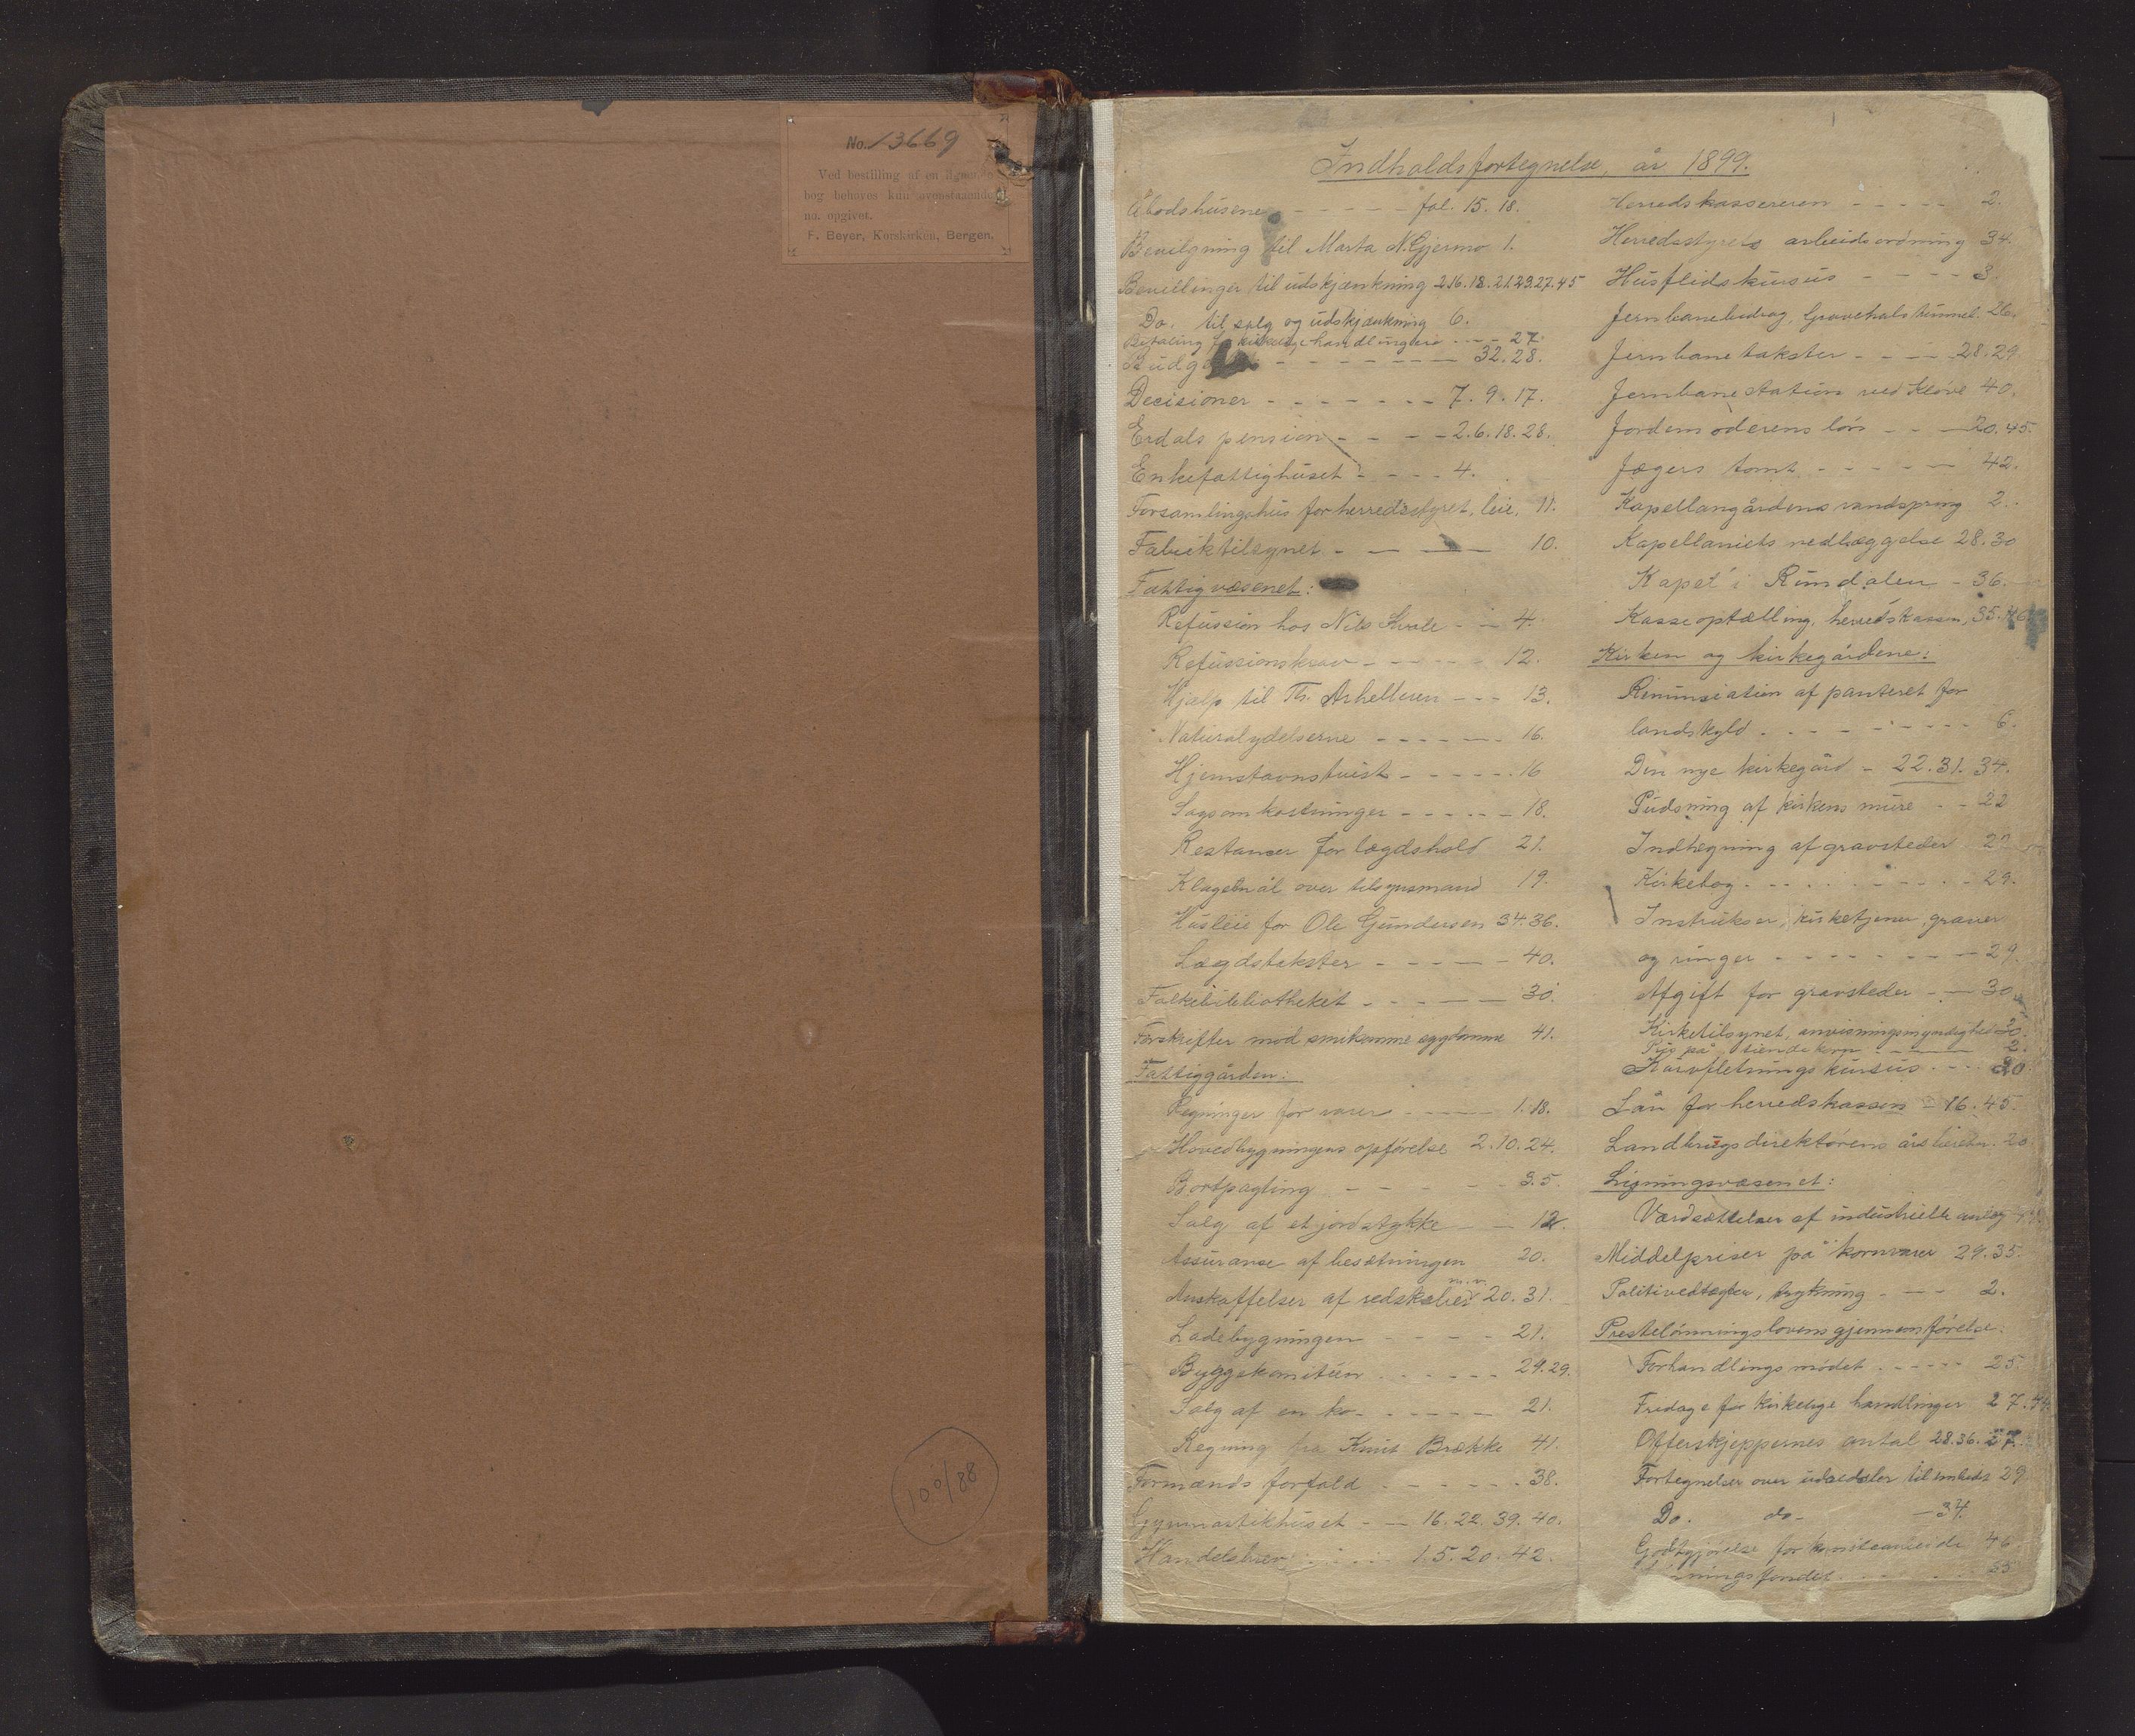 No. 13669
Ved bestilling af en lignende
bog behøves kun ovenstaaende
no. opgivet.
F. Beyer, Korskirken, Bergen.
100/88
Indholdsfortegnelse, år 1899.
Åbodshusene - - - - - fol. 15. 18.
Bevilgning til Marta N. Gjermo 1.
Bevillinger til udskjænkning 2.16.18.21.23.27.45
Do. til salg og udskjænkning 6.
Betaling for kirkelige handlinger - - - 27.
Budg - - - - - - 32.28.
Decisioner - - - - - - - 7. 9. 17.
Erdals pension - - - - 2.6.18.28.
Enkefattighuset - - - - 4.
Forsamlingshus for herredsstyret, leie, 11.
Fabriktilsynet - - - - 10.
Fattigvæsenet:
Refusion hos Nils Kvale - - 4.
Refusionskrav - - - - - 12.
Hjælp til Th. Arhelleren - - - 13.
Naturalydelserne - - - - - - 16.
Hjemstavnstvist - - - - - 16
Sagsomkostninger - - - - - 18.
Restancer for lægdshold 21.
Klagemål over tilsynsmand 19.
Husleie for Ole Gundersen 34.36.
Lægdstakster - - - - - 40.
Folkebibliotheket - - - - - 30.
Forskrifter mod smitsomme sygdomme 41.
Fattiggården:
Regninger for varer - - - - 1.18.
Hovedbygningens opførelse 2.10.24.
Bortpagting - - - - - - 3.5.
Salg af et jordstykke - - 12.
Assuranse af besætningen 20.
Anskaffelser af redskaber m.v. 20.31.
Ladebygningen - - - - 21.
Byggekomiteen - - - - - - 24.29.
Salg af en ko - - - - - - 21.
Regning fra Knut Brække 41.
Formænds forfald - - - - - - 38.
Gymnastikhuset - - 16.22.39.40.
Handelsbrev - - - - 1.5.20.42.
Herredskassereren - - - - - 2.
Herredsstyrets arbeidsordning 34.
Husflidskursus - - - - - 3.
Jernbanebidrag, Gravehalstunnel. 26.
Jernbanetakster - - - - 28.29.
Jernbanestation ved Kløve 40.
Jordemoderens løn - - - 20.45.
Jægers tomt - - - - - - 42.
Kapellangårdens vandspring 2.
Kapellaniets nedlæggelse 28.30
Kapel i Rundalen - 36.
Kasseoptælling, herredskassen, 35.46
Kirken og kirkegårdene:
Renunsiation af panteret for
landskyld - - - - - - - - 6.
Den nye kirkegård - 22.31.34.
Pudsning af kirkens mure - - 22
Indhegning af gravsteder
Kirketog - - - - - - - - 29.
Instrukser, kirketjener, graver
og ringer - - - - - - - - 29.
Afgift for gravsteder - - 30
Kirketilsynet, anvisningsmyndighed 30.
Pris på tiendekorn - - - - 2.
Kurvfletningskursus - - - 20
Lån for herredskassen - 16.45.
Landbrugsdirektørens årsberetn. 20
Ligningsvæsenet:
Værdsættelser af industrielle anlæg
Middelpriser på kornvarer 29.35.
Politivedtægter, trykning - - - 2.
Prestelønningslovens gjennemførelse:
Forhandlingsmødet - - - - - 25
Fridage for kirkelige handlinger 27.44
Offerskjeppernes antal 28.36.37.
Fortegnelser over 29
Do. do - - 34.
Godtgjørelse for komitearbeide 46
ningsfondet - - - - 35